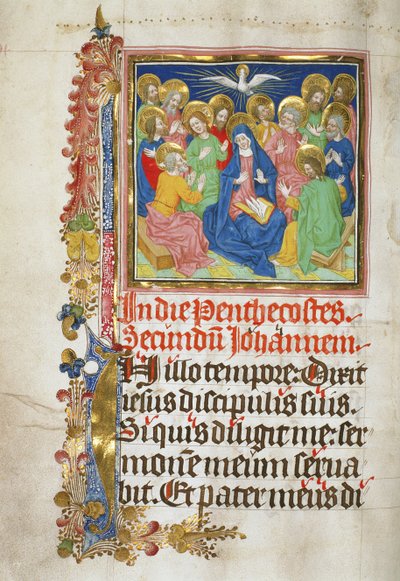 In die Penthecostes.
Secundū Johannem
IN illo tempore: Dixit
iesus discipulis suis.
Si quis diligit me: ser
monē meum serua
bit. Et pater meus di